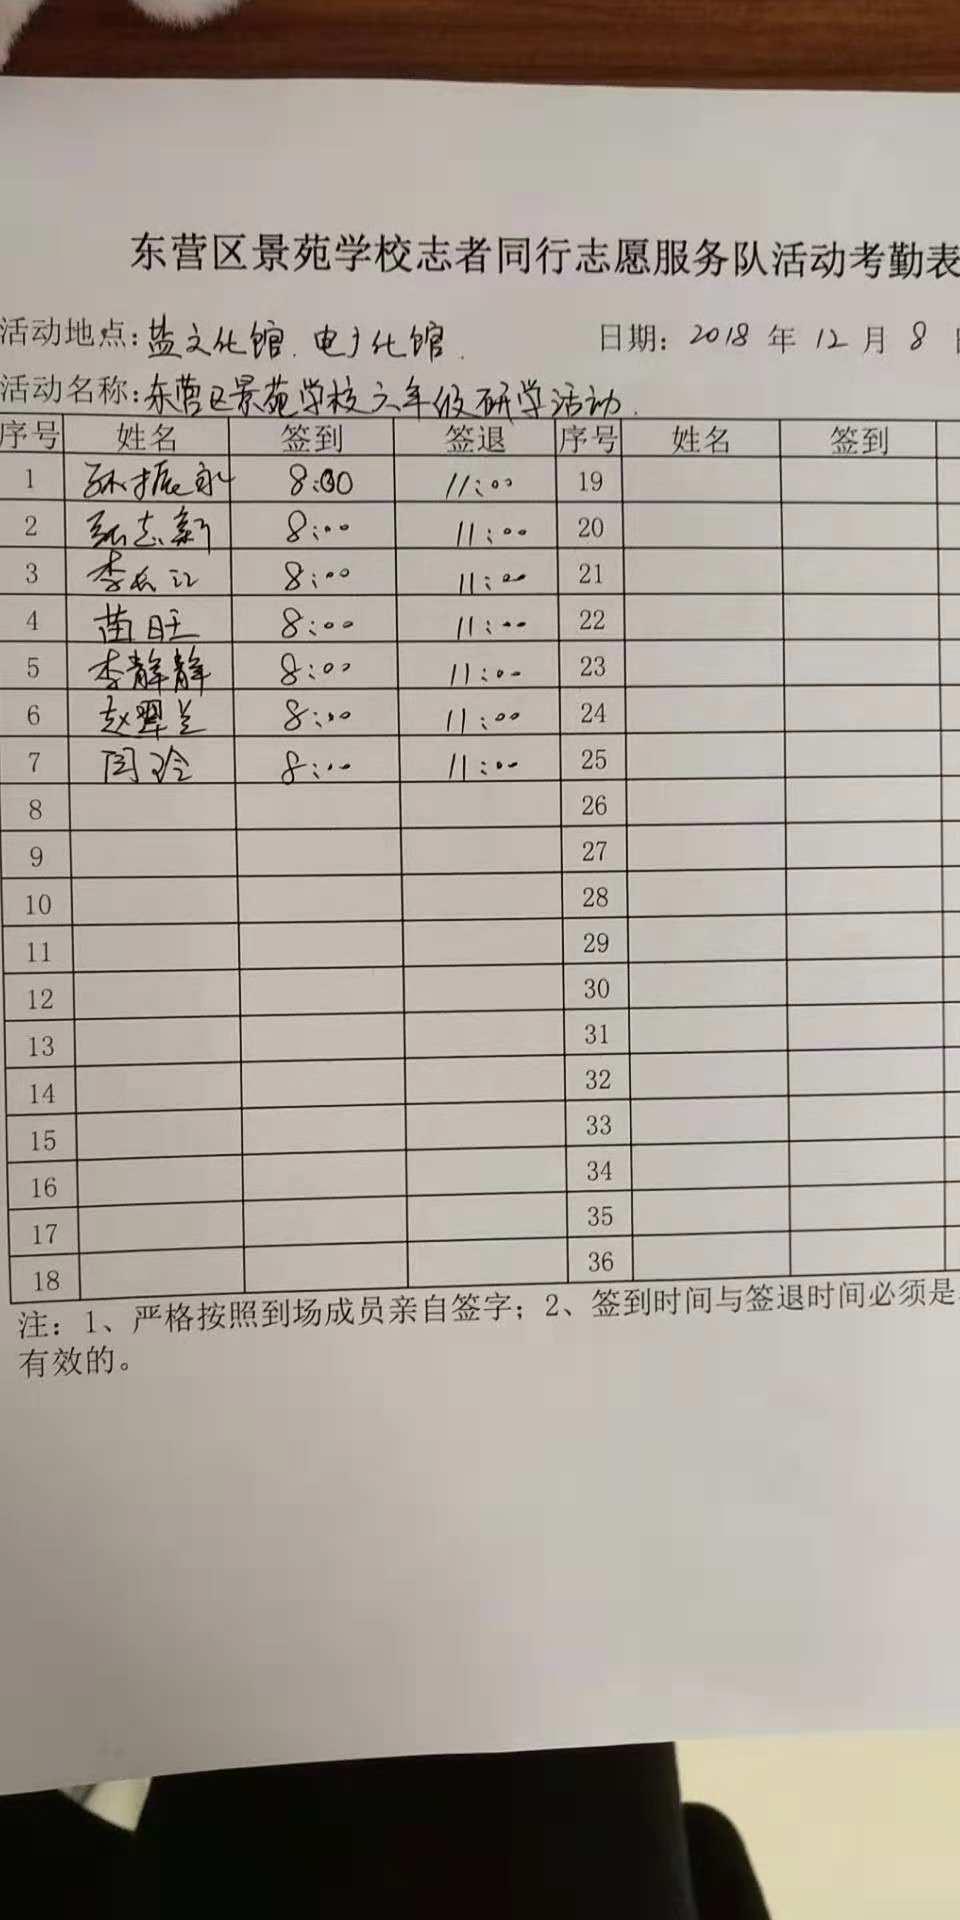 东营区景苑学校志者同行志愿服务队活动考勤表
活动地点：盐文化馆、电子化馆． 日期：2018 年 12 月 8 日
活动名称：东营区景苑学校六年级研学活动．
序号 姓名 签到 签退 序号 姓名 签到
1 孙振永 8:00 11:00 19
2 张志新 8:00 11:00 20
3 李长江 8:00 11:00 21
4 苗旺 8:00 11:00 22
5 李静静 8:00 11:00 23
6 赵翠兰 8:00 11:00 24
7 闫玲 8:00 11:00 25
8 26
9 27
10 28
11 29
12 30
13 31
14 32
15 33
16 34
17 35
18 36
注：1、严格按照到场成员亲自签字；2、签到时间与签退时间必须是
有效的。